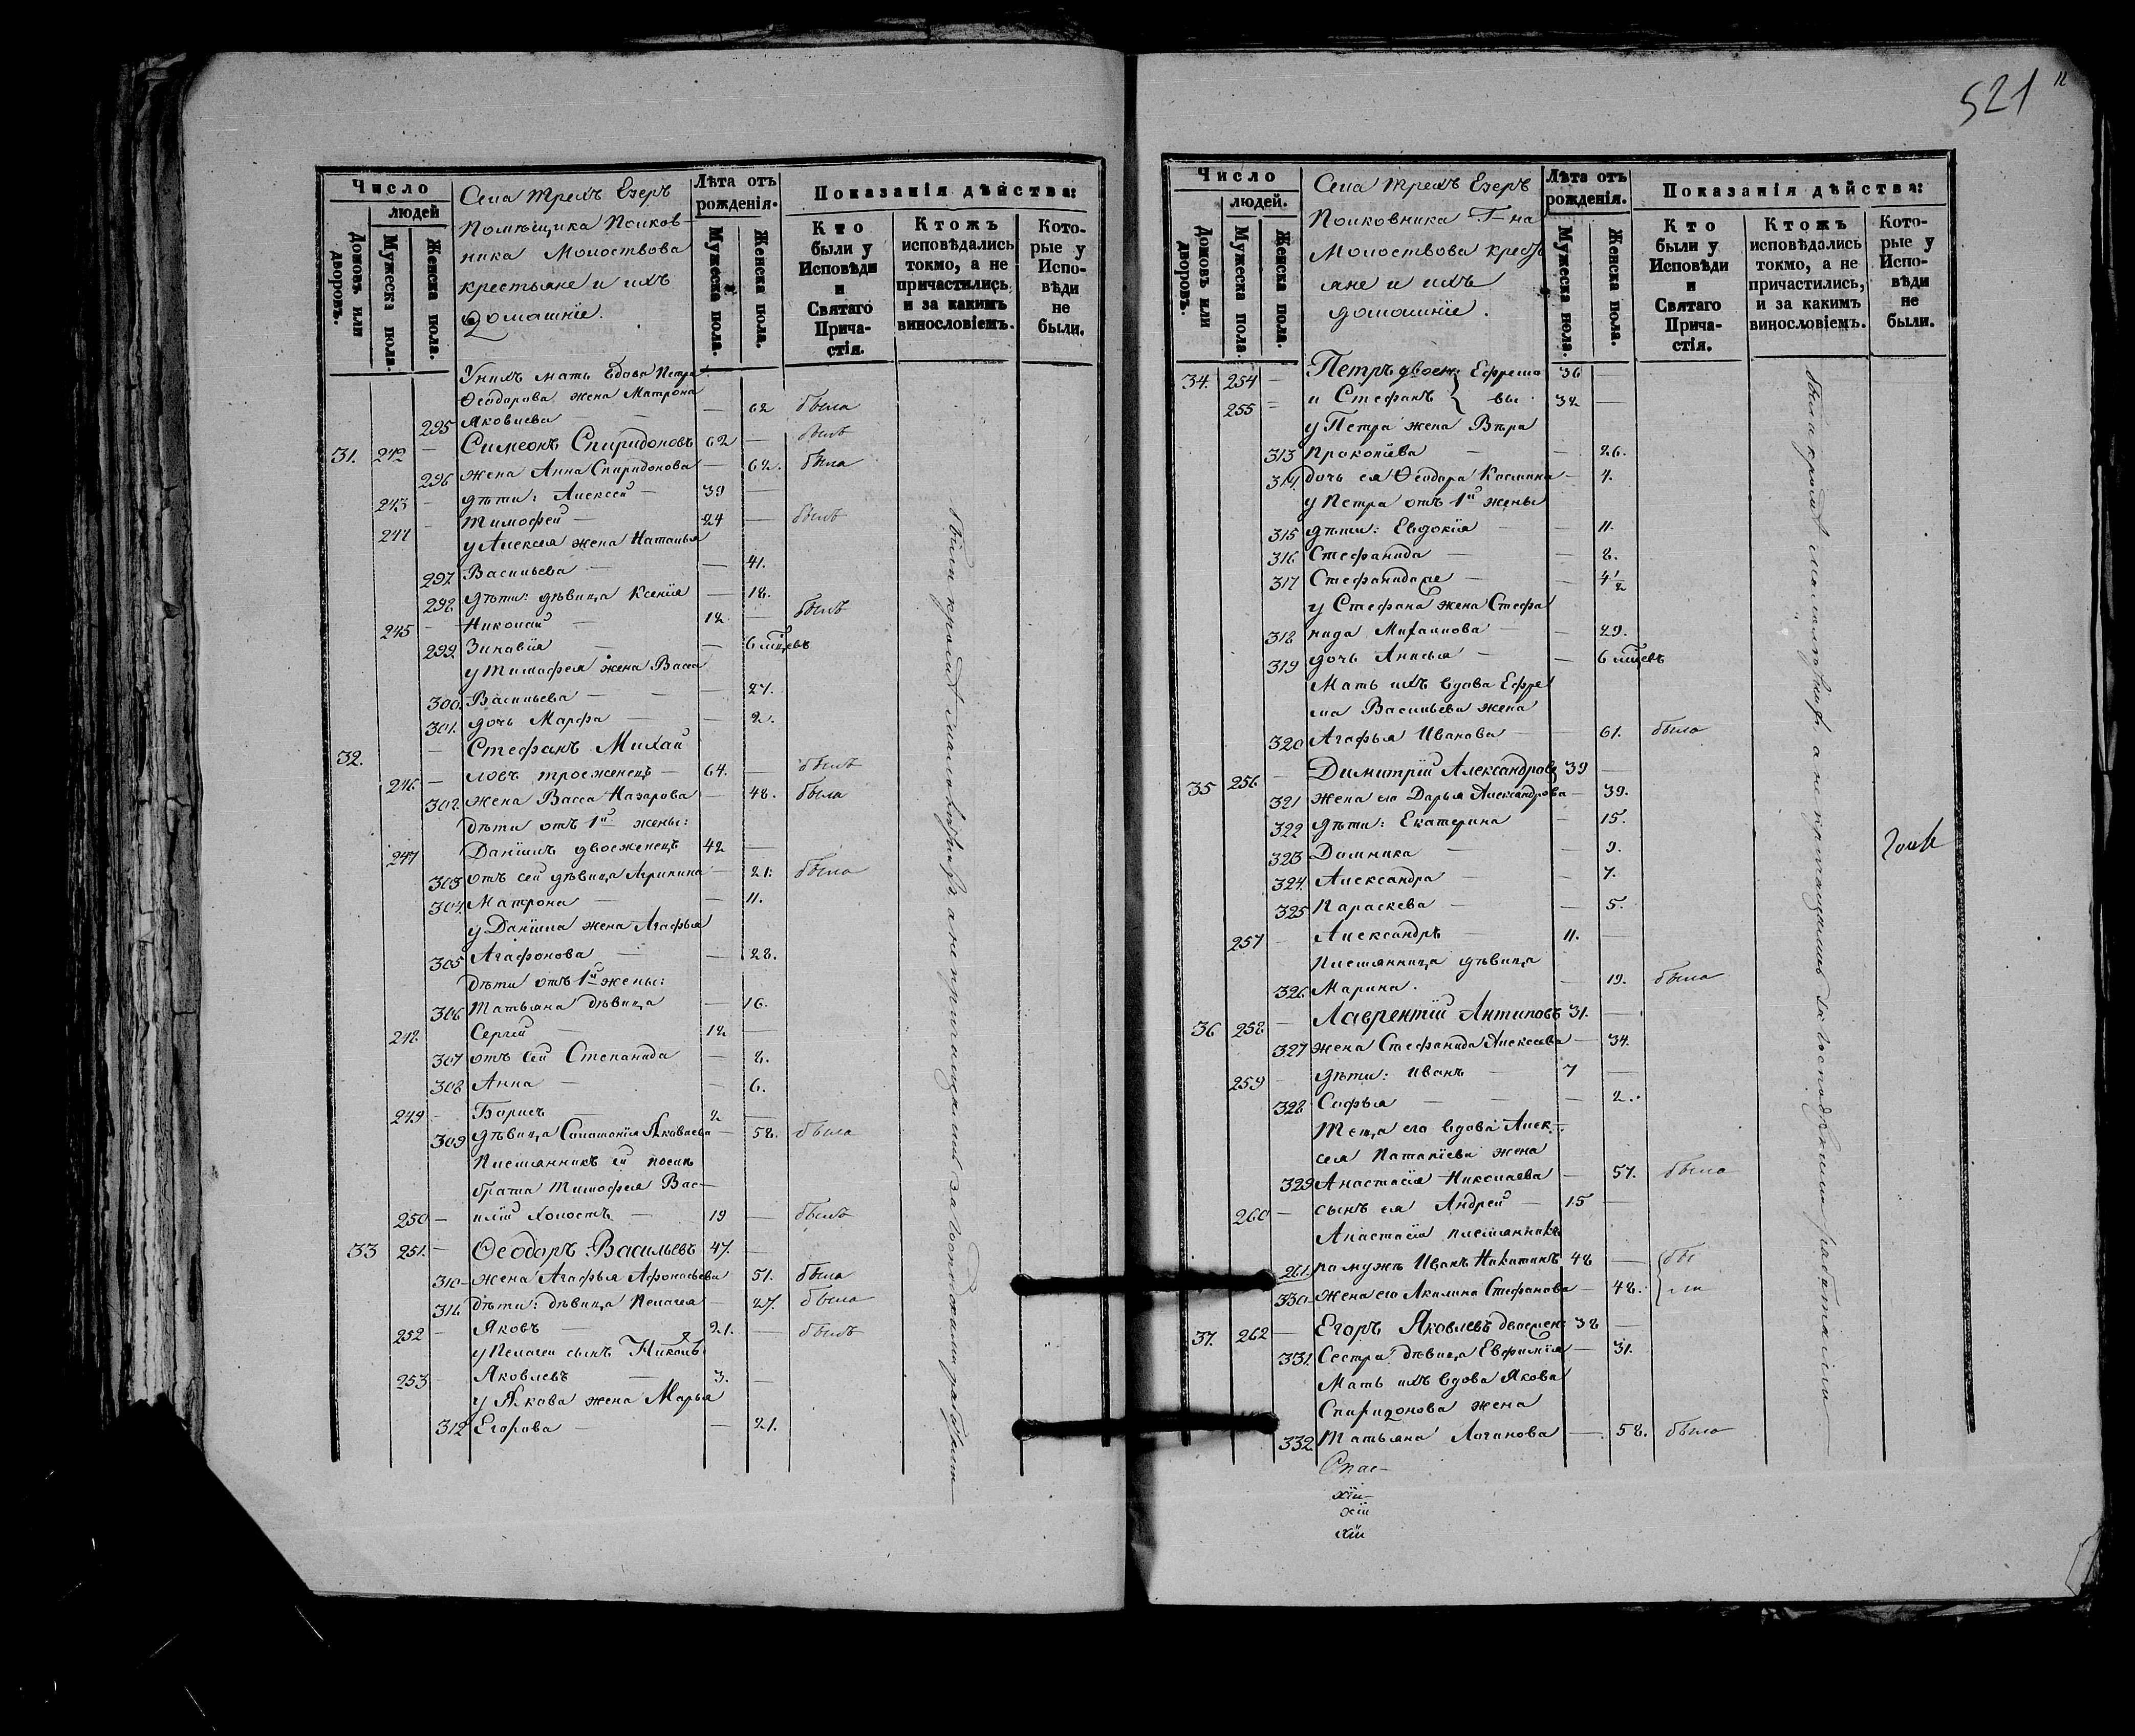 521
Число
людей
Домовъ или дворовъ.
Мужеска пола.
Женска пола.
Села трехъ Езеръ
Помѣщика Полков-
ника Молоствова
крестьяне и ихъ
домашніе.
Лѣта отъ рожденія.
Мужеска пола.
Женска пола.
Показанія дѣйства:
Кто были у Исповѣди и Святаго Прича-стія.
Ктожъ исповѣдались токмо, а не причастились и за какимъ винословіемъ.
Кото-рые у Испо-вѣди не были.
У нихъ мать вдова Петра
Ѳеодорова жена Матрона
295 Яковлева — — 62 была
31. 242 — Симеонъ Спиридоновъ 62 — былъ
296 жена Анна Спиридонова — 62. была
243 — дѣти: Алексей — 39 —
244 — Тимофей — 24 — былъ
у Алексея жена Наталья
297 Васильева — — 41.
298 дѣти: дѣвица Ксенія — 18.
245 — Николай — 12 — былъ
299. Зиновія — — 6 мцевъ
у Тимофея жена Васса
300. Васильева — — 27.
301. дочь Марфа — — 2.
32. — Стефанъ Михай
246. — ловъ троеженецъ — 64. — былъ
302. жена Васса Назарова — 48. была
Дѣти отъ 1й жены:
247 Даніилъ двоеженецъ 42 —
303 отъ сей дѣвица Агрипина — 21. была
304. Матрона — — 11.
у Даніила жена Агафья
305 Агафонова — — 28.
Дѣти отъ 1й жены:
306. Татьяна дѣвица — 16.
248. Сергей — 12 —
307 отъ сей Степанида — 8.
308 Анна — — 6.
249 — Борисъ 2 —
309 дѣвица Соломонія Яковлева — 58. была
Племянникъ ей после
брата Тимофея Вас-
250 — илій холостъ — 19 — былъ
33 251. — Ѳеодоръ Васильевъ 47. —
310 — жена Агафья Афонасьева 51. была
311. дѣти: дѣвица Пелагея — 27. была
252 — Яковъ — 21. — былъ
у Пелагеи сынъ Никола
253 Яковлевъ — 3. —
у Якова жена Марья
312 Егорова — — 21.
были кромѣ малолѣтнихъ а не причащались за господскими работами
Число
людей.
Домовъ или дворовъ.
Мужеска пола.
Женска пола.
Села трехъ Езеръ
Полковника Г-на
Молоствова кресть
яне и ихъ
домашніе.
Лѣта отъ рожденія.
Мужеска пола.
Женска пола.
Показанія дѣйства:
Кто были у Исповѣди и Святаго Прича-стія.
Ктожъ исповѣдались токмо, а не причастились, и за какимъ винословіемъ.
Кото-рые у Испо-вѣди не были.
34. 254 — Петръ двоен: Ефремо 36 —
255 — и Стефанъ вы. 32 —
у Петра жена Вѣра
313 Прокопіева — — 26.
314. дочь ея Ѳеодора Космина — 4.
у Петра отъ 1й жены
315 дѣти: Евдокія — — 11.
316. Стефанида — — 8.
317 Стефанида же — — 4 1/2
у Стефана жена Стефа
318 нида Михаилова — — 29.
319 дочь Анисья — — 6 мцевъ
Мать ихъ вдова Ефре
ма Васильева жена
320 Агафья Иванова — — 61. была
35 256 — Димитрій Александровъ 39 —
321 жена его Дарья Александрова — 39.
322 дѣти: Екатерина — 15.
323 Домника — — 9.
324. Александра — — 7.
325 Параскева — — 5.
257 — Александръ — 11. —
Племянница дѣвица
326. Марина. — 19. была
36 258 — Лаврентій Антиповъ 31. —
327 жена Стефанида Алексеева — 34.
259 — дѣти: Иванъ — 7 —
328 Софья — — — 2.
Теща его вдова Алек-
сея Потапіева жена
329 Анастасія Николаева — 57. была
260 — сынъ ея Андрей — 15 —
Анастасіи племянника
261. по мужѣ Иванъ Никитинъ 48 — бы
330 — жена его Акилина Стефанова — 48. ли
37. 262 — Егоръ Яковлевъ двоежен: 38 —
331. Сестра дѣвица Евфимія — 31.
Мать ихъ вдова Якова
Спиридонова жена
332. Татьяна Логинова — 58. была
были кромѣ малолѣтнихъ, а не причащались за господскими работами
Спас-